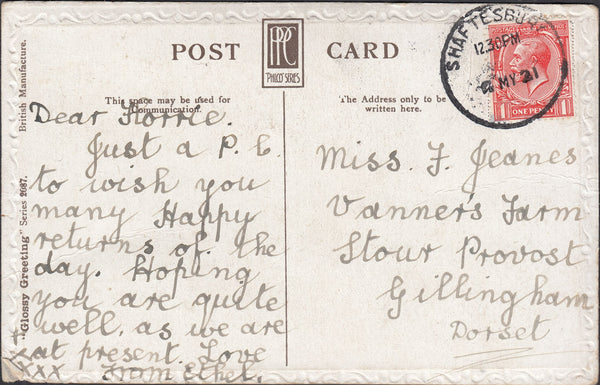 POST CARD
PPC
"PHILCO" SERIES
British Manufacture.
"Glossy Greeting" Series 2687.
This space may be used for
Communication.
The Address only to be
written here.
SHAFTESBU
12.30PM
MY 21
POSTAGE
ONE PENNY
1 1
Dear Florrie.
Just a P.C
to wish you
many Happy
returns of the
day. Hoping
you are quite
well, as we are
at present. Love
xxx from Ethel.
Miss F. Jeanes
Vanner's Farm
Stour Provost
Gillingham
Dorset